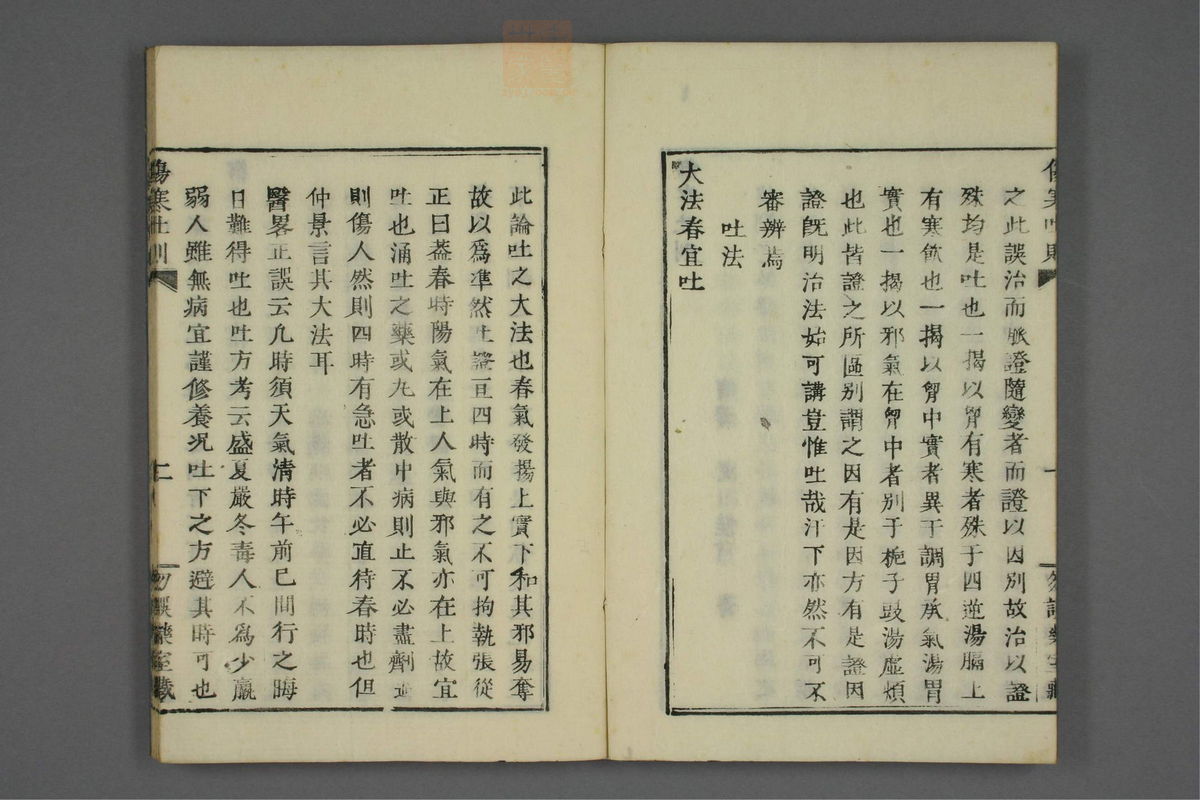 之此誤治而脈證隨變者而證以因別故治以證
殊均是吐也一揭以胷有寒者殊于四逆湯膈上
有寒飲也一揭以胷中實者異于調胃承氣湯胃
實也一揭以邪氣在胷中者別于梔子豉湯虛煩
也此皆證之所區別謂之因有是因方有是證因
證旣明治法始可講豈惟吐哉汗下亦然不可不
審辨焉
吐法
大法春宜吐
此論吐之大法也春氣發揚上實下和其邪易奪
故以爲準然吐證亘四時而有之不可拘執張從
正曰葢春時陽氣在上人氣與邪氣亦在上故宜
吐也涌吐之藥或丸或散中病則止不必盡劑過
則傷人然則四時有急吐者不必直待春時也但
仲景言其大法耳
醫畧正誤云凡時須天氣淸時午前巳間行之晦
日難得吐也吐方考云盛夏嚴冬毒人不爲少羸
弱人雖無病宜謹修養况吐下之方避其時可也
傷寒吐則
二
勿誤藥室藏